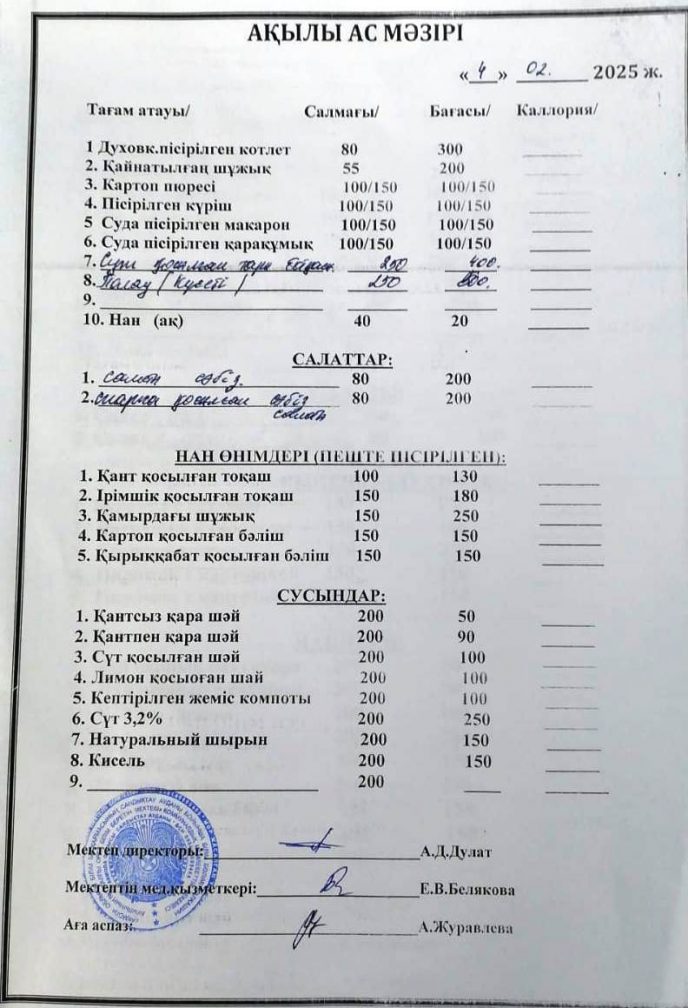 АҚЫЛЫ АС МӘЗІРІ
« 4 » 02. 2025 ж.
Тағам атауы/ Салмағы/ Бағасы/ Каллория/
1 Духовк.пісірілген котлет 80 300
2. Қайнатылғаң шұжық 55 200
3. Картоп пюресі 100/150 100/150
4. Пісірілген күріш 100/150 100/150
5 Суда пісірілген макарон 100/150 100/150
6. Суда пісірілген қарақұмық 100/150 100/150
7. қосылған 250 400.
8. Палау 250
9.
10. Нан (ақ) 40 20
САЛАТТАР:
1. сәбіз 80 200
2. қосылған сәбіз 80 200
салат
НАН ӨНІМДЕРІ (ПЕШТЕ ПІСІРІЛГЕН):
1. Қант қосылған тоқаш 100 130
2. Ірімшік қосылған тоқаш 150 180
3. Қамырдағы шұжық 150 250
4. Картоп қосылған бәліш 150 150
5. Қырыққабат қосылған бәліш 150 150
СУСЫНДАР:
1. Қантсыз қара шәй 200 50
2. Қантпен қара шәй 200 90
3. Сүт қосылған шәй 200 100
4. Лимон қосыоған шай 200 100
5. Кептірілген жеміс компоты 200 100
6. Сүт 3,2% 200 250
7. Натуральный шырын 200 150
8. Кисель 200 150
9. 200
Мектеп директоры: А.Д.Дулат
Мектептін мед.қызметкері: Е.В.Белякова
Аға аспаз: А.Журавлева